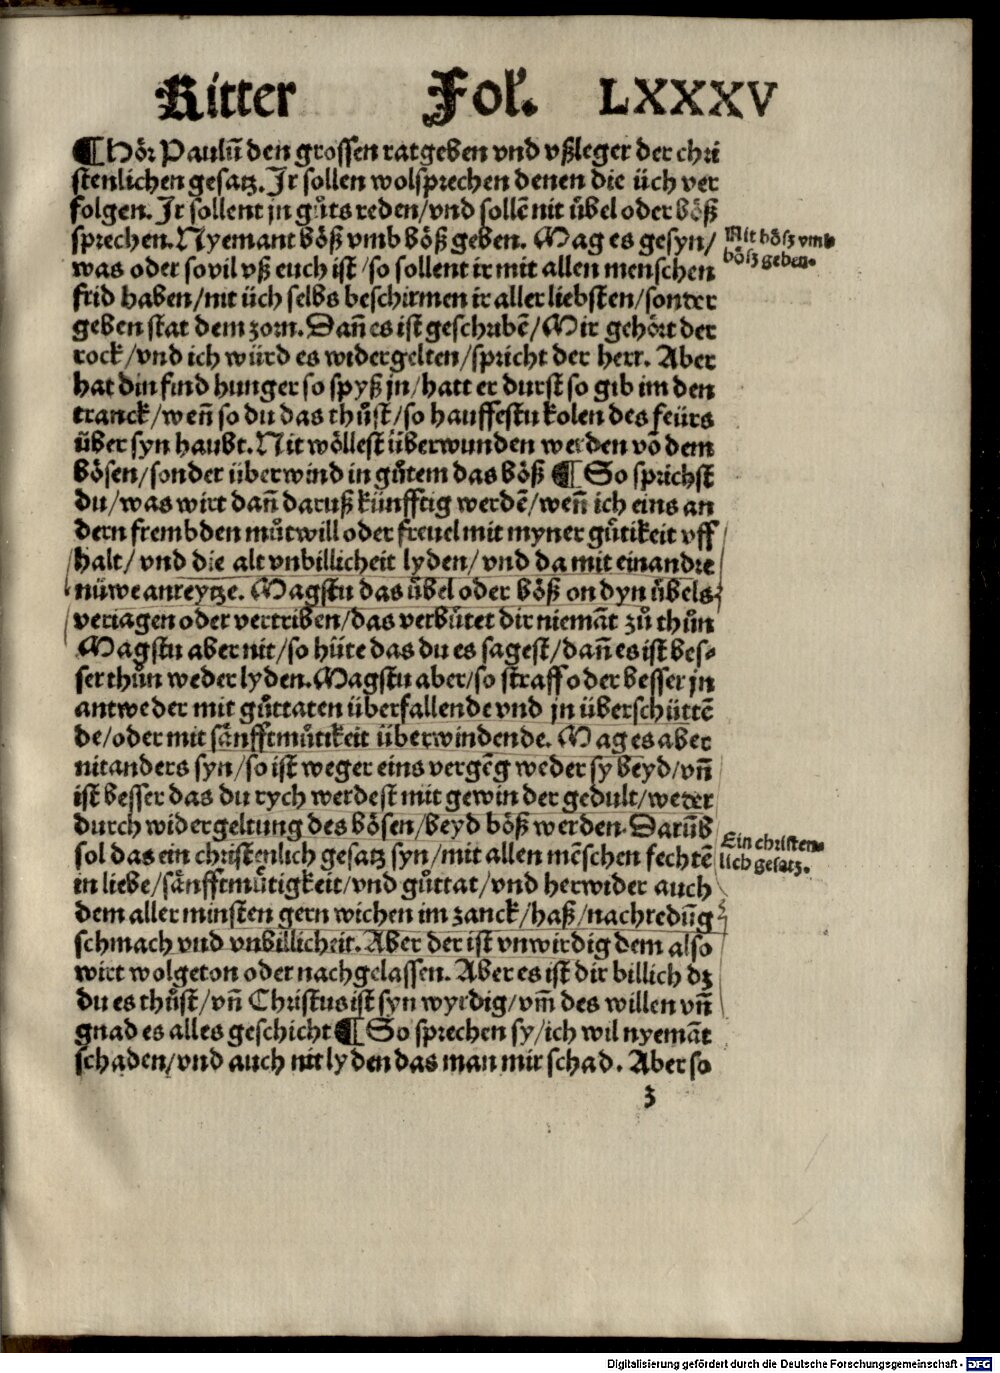 Ritter Fol. LXXXV
¶Hör Paulū den grossen ratgeben vnd vßleger der chri
stenlichen gesatz. Ir sollen wolsprechen denen die üch ver
folgen. Ir sollent in gůts reden/vnd sollē nit übel oder böß
sprechen. Nyemant böß vmb böß geben. Mag es gesyn/
Nit böß vmb
böß geben.
was oder sovil vß euch ist/so sollent ir mit allen menschen
frid haben/nit üch selbs beschirmen ir aller liebsten/sonder
geben stat dem zorn. Dañ es ist geschribē/Mir gehört der
rock/vnd ich würd es widergelten/spricht der herr. Aber
hat din find hunger so spyß jn/hatt er durst so gib im den
tranck/weñ so du das thůst/so hauffestu kolen des feürs
über syn haubt. Nit wöllest überwunden werden vō dem
bösen/sonder überwind in gůtem das böß ¶ So sprichst
du/was wirt dañ daruß künfftig werdē/weñ ich eins an
dern frembden můtwill oder freuel mit myner gůtikeit vff
halt/vnd die alt vnbillicheit lyden/vnd da mit ein andre
nüwe anreytze. Magstu das übel oder böß on dyn übels
veriagen oder vertriben/das verbütet dir niemāt zů thůn
Magstu aber nit/so hüte das du es sagest/dañ es ist bes⸗
ser thůn weder lyden. Magstu aber/so straff oder besser jn
antweder mit gůttaten überfallende vnd jn überschüttē
de/oder mit sänfftmůtikeit überwindende. Mag es aber
nit anders syn/so ist weger eins vergēg weder sy beyd/vñ
ist besser das du rych werdest mit gewin der gedult/weder
durch widergeltung des bösen/beyd böß werden. Darūb
sol das ein christenlich gesatz syn/mit allen mēschen fechtē
Ein christen⸗
lich gesatz.
in liebe/sänfftmůtigkeit/vnd gůttat/vnd herwider auch
dem aller minsten gern wichen im zanck/haß/nachredūg
schmach vnd vnbillicheit. Aber der ist vnwirdig dem also
wirt wolgeton oder nachgelassen. Aber es ist dir billich dz
du es thůst/vñ Christus ist syn wyrdig/vm̄ des willen vñ
gnad es alles geschicht ¶ So sprechen sy/ich wil nyemāt
schaden/vnd auch nit lyden das man mir schad. Aber so
z
Digitalisierung gefördert durch die Deutsche Forschungsgemeinschaft - DFG